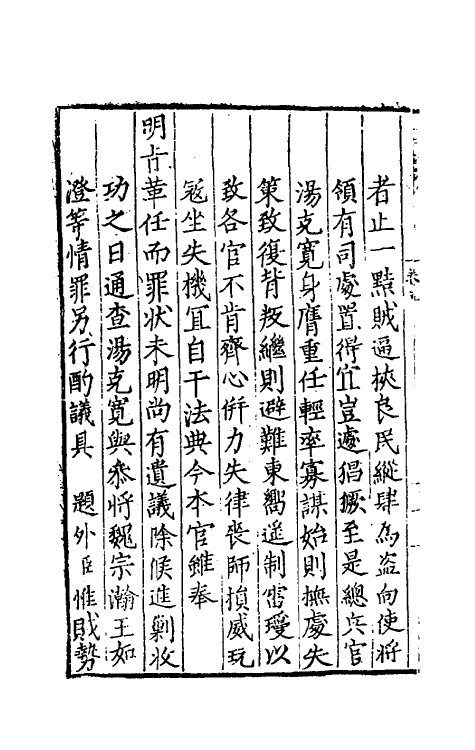 者止一黠賊逼挾良民縱肆為盗向使將
領有司處置得宜豈遽猖獗至是總兵官
湯克寬身膺重任輕率寡謀始則撫處失
策致復背叛繼則避難東嚮遥制雷瓊以
致各官不肯齊心併力失律喪師損威玩
冦坐失機冝自干法典今本官雖奉
明旨革任而罪狀未明尚有遺議除候進剿收
功之日通查湯克寛與叅將魏宗瀚王如
澄等情罪另行酌議具 題外臣惟賊勢